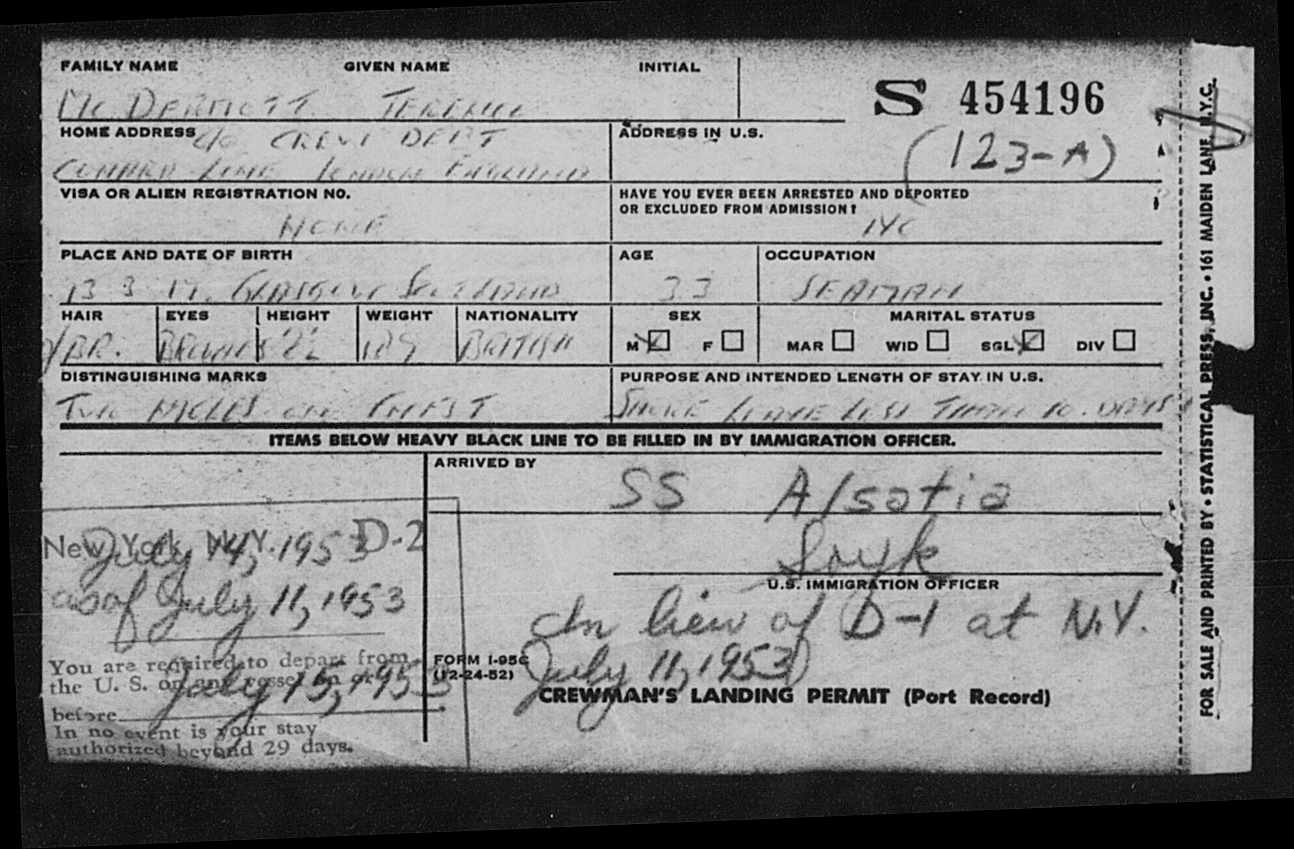 FAMILY NAME GIVEN NAME INITIAL
Mc DERMOTT TERENCE
S 454196
HOME ADDRESS c/o CREW DEPT
CUNARD LINE LONDON ENGLAND
ADDRESS IN U.S.
(123-A)
VISA OR ALIEN REGISTRATION NO.
NONE
HAVE YOU EVER BEEN ARRESTED AND DEPORTED
OR EXCLUDED FROM ADMISSION?
NO
PLACE AND DATE OF BIRTH AGE OCCUPATION
13 3 GLASGOW SCOTLAND 33 SEAMAN
HAIR EYES HEIGHT WEIGHT NATIONALITY SEX MARITAL STATUS
BR. BROWN BRITISH M F MAR WID SGL DIV
DISTINGUISHING MARKS PURPOSE AND INTENDED LENGTH OF STAY IN U.S.
TWO MOLES ON CHEST SHORE LEAVE LESS THAN 10 DAYS
ITEMS BELOW HEAVY BLACK LINE TO BE FILLED IN BY IMMIGRATION OFFICER.
ARRIVED BY
SS Alsatia
U.S. IMMIGRATION OFFICER
New York, N.Y. D-2
July 14, 1953
as of July 11, 1953
You are required to depart from
the U. S. on any vessel on or
before July 15, 1953
In no event is your stay
authorized beyond 29 days.
In lieu of D-1 at N.Y.
July 11, 1953)
FORM I-95C
(12-24-52)
CREWMAN'S LANDING PERMIT (Port Record)
FOR SALE AND PRINTED BY • STATISTICAL PRESS, INC. • 161 MAIDEN LANE, N.Y.C.